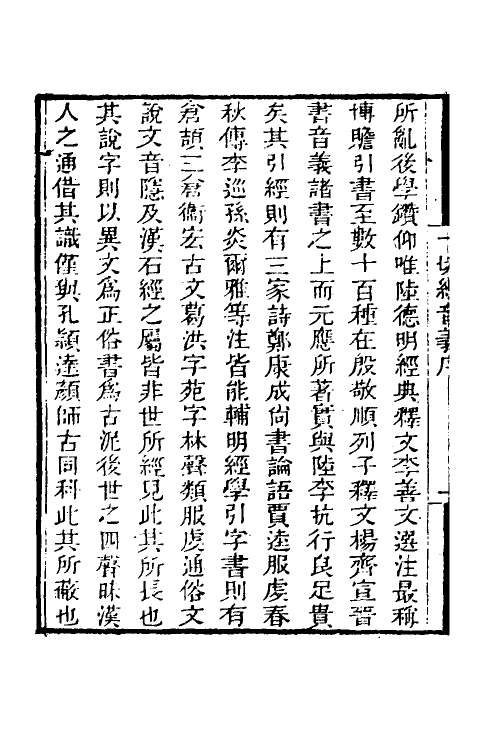 一切經音義序
所亂後學鑽仰唯陸德明經典釋文李善文選注最稱
博贍引書至數十百種在殷敬順列子釋文楊齊宣晉
書音義諸書之上而元應所著實與陸李抗行良足貴
矣其引經則有三家詩鄭康成尙書論語賈逵服虔春
秋傳李巡孫炎爾雅等注皆能輔明經學引字書則有
倉頡三倉衞宏古文葛洪字苑字林聲類服虔通俗文
說文音隱及漢石經之屬皆非世所經見此其所長也
其說字則以異文爲正俗書爲古泥後世之四聲昧漢
人之通借其識僅與孔穎逵顏師古同科此其所蔽也